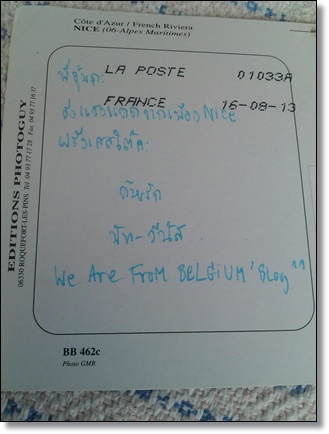 Côte d'Azur / French Riviera
NICE (06-Alpes Maritimes)
LA POSTE 01033A
พี่อุ้มคะ
FRANCE 16-08-13
ส่งแสงแดดจากเมือง Nice
ฝรั่งเศสใต้ค่ะ
ด้วยรัก
นัท-วีนัส
We Are From BELGiUM 'Blog' ^^
EDITIONS PHOTOGUY
06330 ROQUEFORT-LES-PINS Tel 04 93 77 17 28 Fax 04 93 77 16 37
BB 462c
Photo GMB